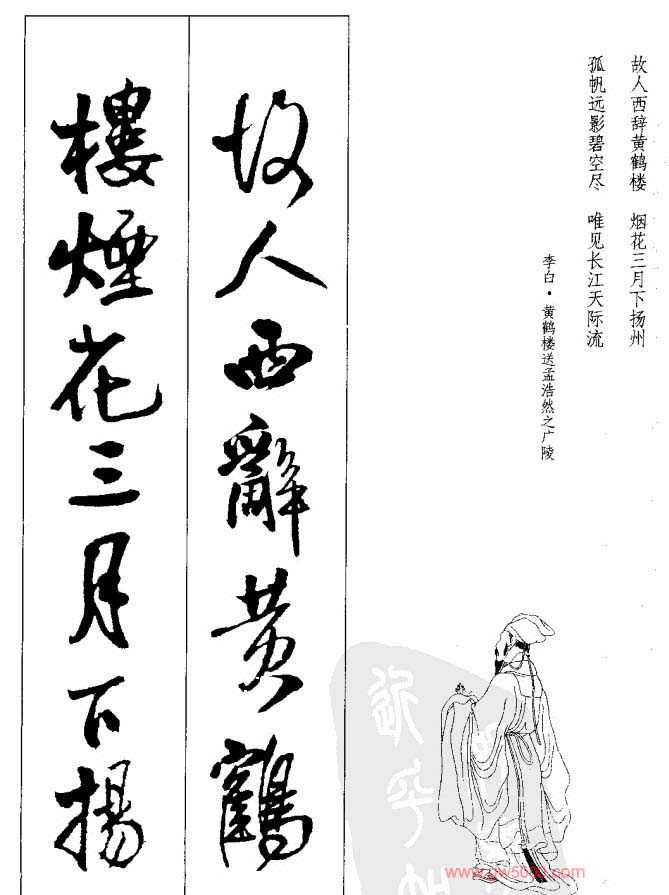 故人西辞黄鹤楼 烟花三月下扬州
孤帆远影碧空尽 唯见长江天际流
李白·黄鹤楼送孟浩然之广陵
故人西辭黄鶴
樓煙花三月下揚
www.gw5000.com